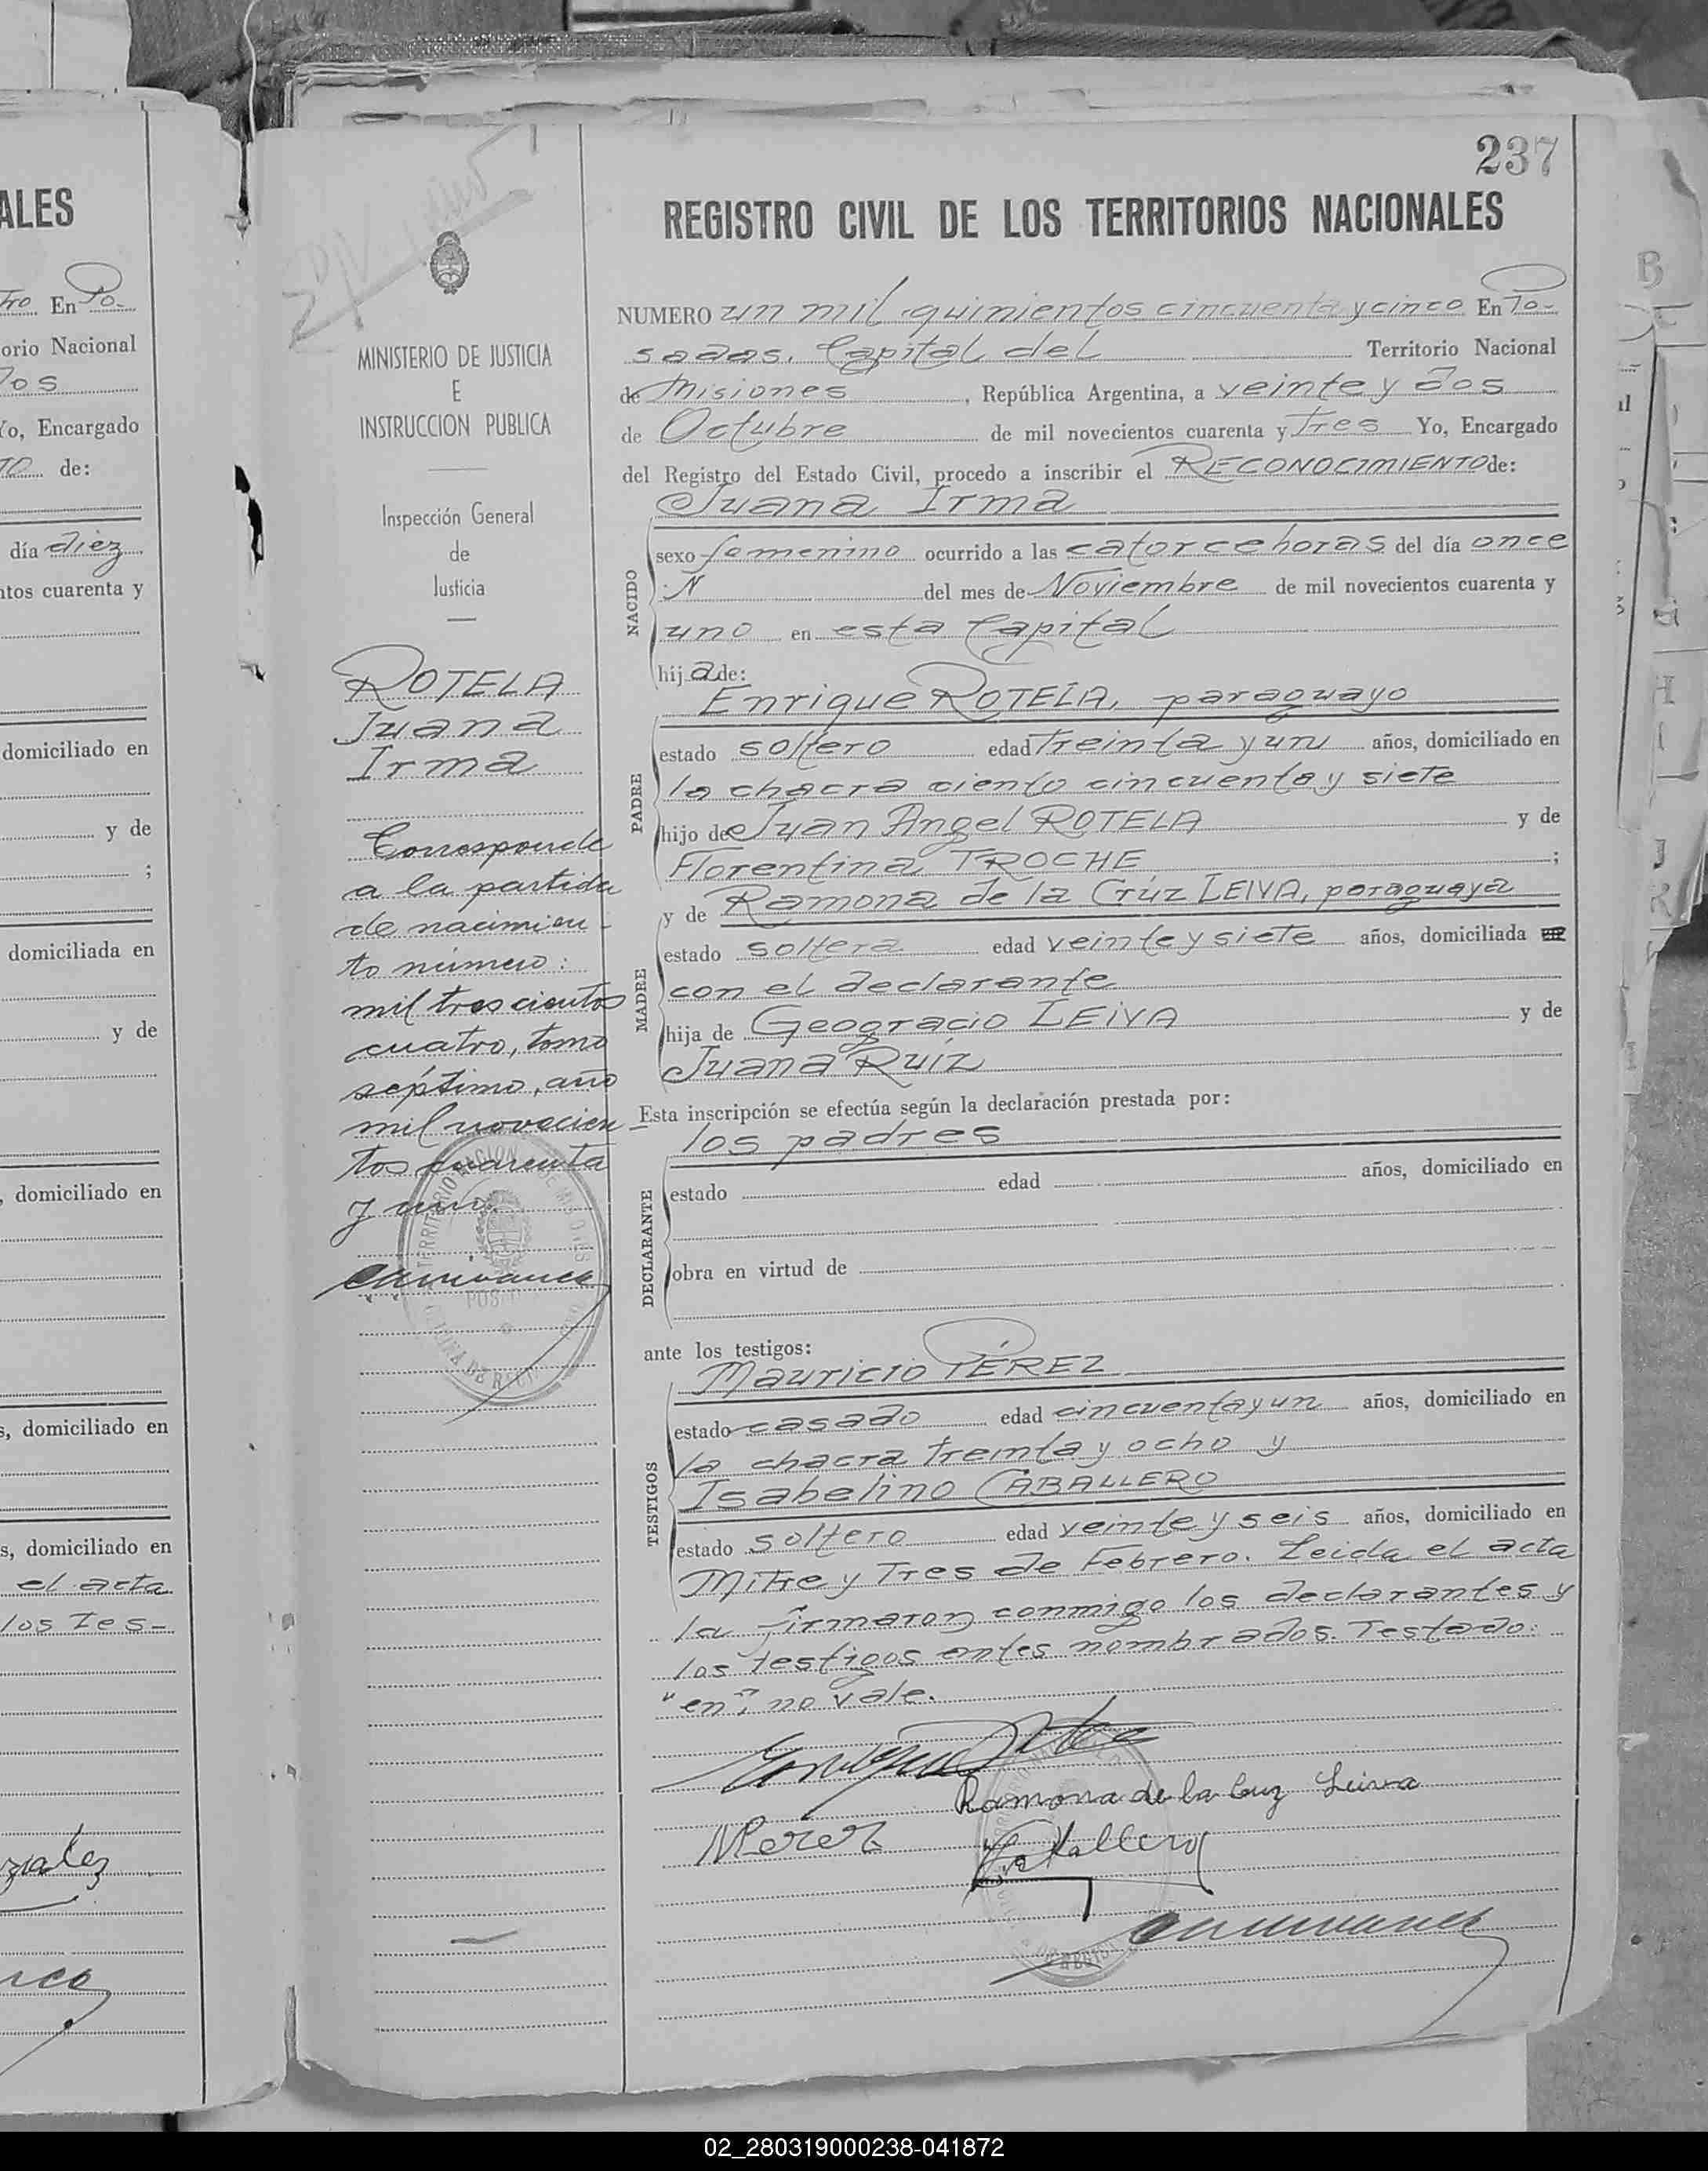 ALES
tro En Po-
orio Nacional
dos
Yo, Encargado
de:
día diez
ntos cuarenta y
domiciliado en
y de
;
domiciliada en
y de
, domiciliado en
s, domiciliado en
s, domiciliado en
el acta
los tes-
237
REGISTRO CIVIL DE LOS TERRITORIOS NACIONALES
MINISTERIO DE JUSTICIA
E
INSTRUCCION PUBLICA
Inspección General
de
Justicia
ROTELA
Juana
Irma
Corresponde
a la partida
de nacimien-
to número:
mil trescientos
cuatro, tomo
séptimo, año
mil novecien-
tos cuarenta
y uno.
NUMERO un mil quinientos cincuenta y cinco En Po-
sadas, Capital del Territorio Nacional
de Misiones, República Argentina, a veinte y dos
de Octubre de mil novecientos cuarenta y tres Yo, Encargado
del Registro del Estado Civil, procedo a inscribir el RECONOCIMIENTO de:
Juana Irma
NACIDO
sexo femenino ocurrido a las catorce horas del día once
del mes de Noviembre de mil novecientos cuarenta y
uno en esta Capital
hija de:
Enrique ROTELA, paraguayo
PADRE
estado soltero edad treinta y un años, domiciliado en
la chacra ciento cincuenta y siete
hijo de Juan Angel ROTELA y de
Florentina TROCHE ;
y de Ramona de la Crúz LEIVA, paraguaya
MADRE
estado soltera edad veinte y siete años, domiciliada en
con el declarante
hija de Geogracio LEIVA y de
Juana RUIZ
Esta inscripción se efectúa según la declaración prestada por:
los padres
DECLARANTE
estado edad años, domiciliado en
obra en virtud de
ante los testigos:
Mauricio PÉREZ
TESTIGOS
estado casado edad cincuenta y un años, domiciliado en
la chacra treinta y ocho y
Isabelino CABALLERO
estado soltero edad veinte y seis años, domiciliado en
Mitre y Tres de Febrero. Leida el acta
la firmaron conmigo los declarantes y
los testigos antes nombrados. Testado:
"en", no vale.
Ramona de la Cruz Leiva
MPerez
Caballero
02_280319000238-041872